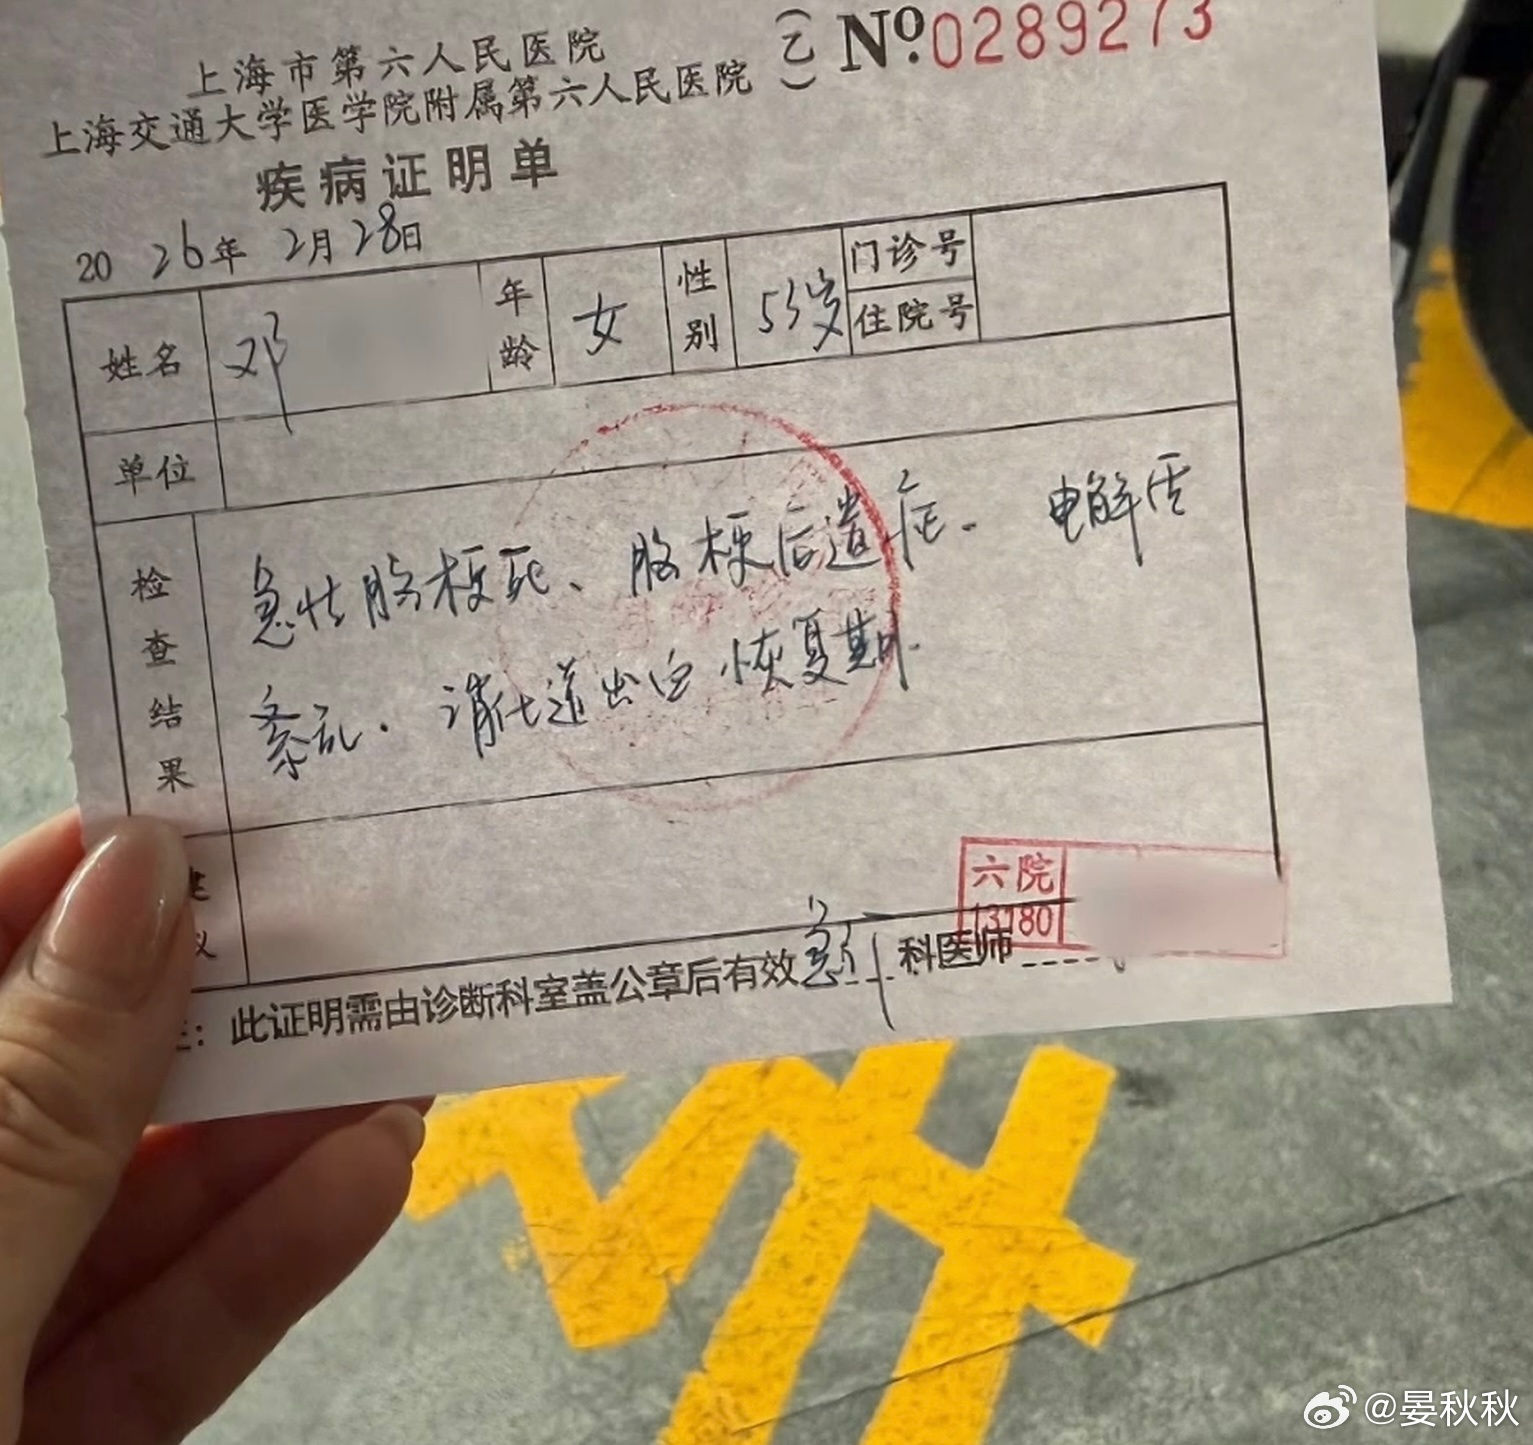 上海市第六人民医院
上海交通大学医学院附属第六人民医院
(乙) №0289273
疾病证明单
2026年2月28日
姓名 邓 年龄 女 性别 53岁 门诊号
住院号
单位
检查结果 急性脑梗死、脑梗后遗症. 电解质
紊乱. 消化道出血恢复期.
六院
13180
此证明需由诊断科室盖公章后有效 急诊 科医师
@晏秋秋